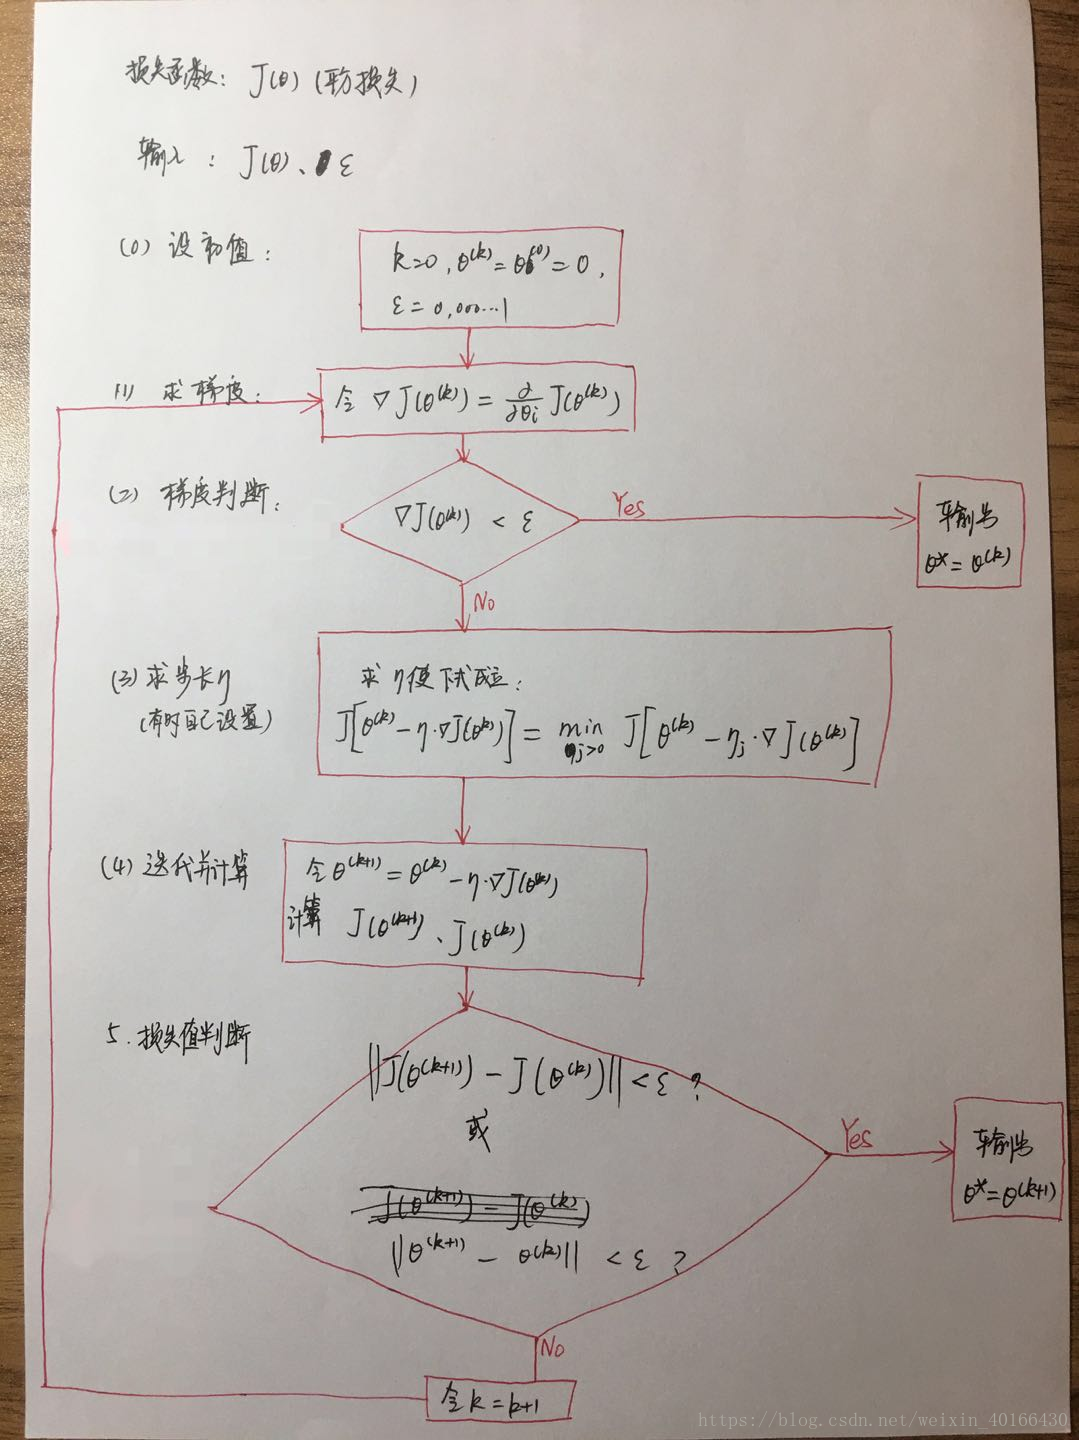 损失函数: J(θ) (平方损失)
输入 : J(θ)、 ε
(0) 设初值:
k=0, θ^(k)=θ^(0)=0,
ε=0,000...1
(1) 求梯度:
令 ∇J(θ^(k)) = ∂/∂θi J(θ^(k))
(2) 梯度判断:
∇J(θ^(k)) < ε
Yes
输出
θ* = θ^(k)
No
(3) 求步长η
(有时自己设置)
求η使下式成立:
J[θ^(k) - η·∇J(θ^(k))] = min ηj>0 J[θ^(k) - ηj·∇J(θ^(k))]
(4) 迭代并计算
令θ^(k+1) = θ^(k) - η·∇J(θ^(k))
计算 J(θ^(k+1))、J(θ^(k))
5. 损失值判断
||J(θ^(k+1)) - J(θ^(k))|| < ε ?
或
J(θ^(k+1)) - J(θ^(k))
||θ^(k+1) - θ^(k)|| < ε ?
Yes
输出
θ* = θ^(k+1)
No
令k=k+1
https://blog.csdn.net/weixin_40166430